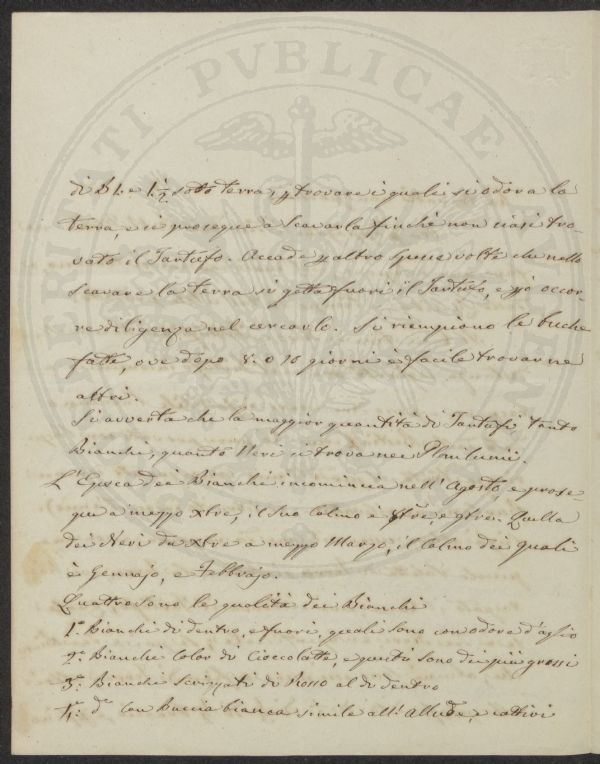 PVBLICAE
di B 1. e 1½ sotto terra, p trovare i quali si odora la
terra, e si prosegue a scavarla finchè non siasi tro-
vato il Tartufo. Accade p altro spesse volte che nello
scavare la terra si getta fuori il Tartufo, e p ciò occor-
re diligenza nel cercarlo. Si riempiono le buche
fatte, ove dopo 8. o 10 giorni è facile trovarne
altri.
Si avverta che la maggior quantità di Tartufi, tanto
Bianchi, quanto Neri si trova nei Plenilunii.
L'Epoca dei Bianchi incomincia nell' Agosto, e prose-
gue a mezzo Xbre, il suo Colmo è 8bre, e 9bre. Quella
dei Neri da Xbre a mezzo Marzo, il Colmo dei quali
è Gennajo, e Febbrajo.
Quattro sono le qualità dei Bianchi
1.° Bianchi di dentro, e fuori, quali sono con odore d'aglio
2.° Bianchi Color di Cioccolatte, e questi sono dei più grossi
3.° Bianchi Screzzati di Rosso al di dentro
4.° d.° Con Buccia bianca simile all' , e cattivi